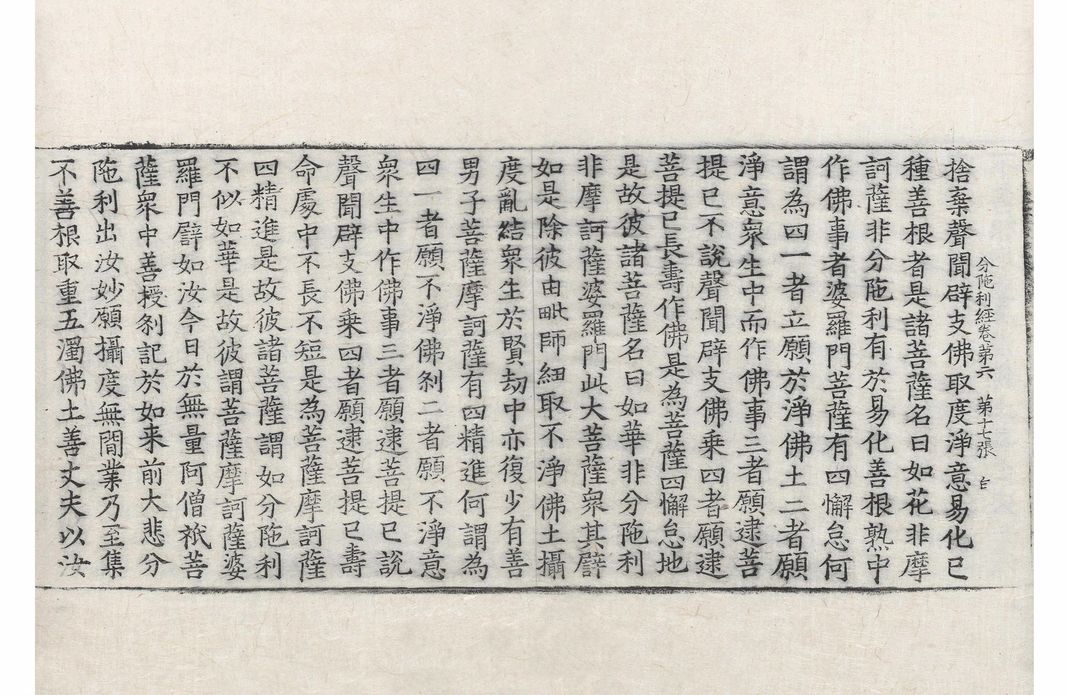 分陁利經卷第六 第十七張
捨棄聲聞辟支佛取度淨意易化已
種善根者是諸菩薩名曰如花非摩
訶薩非分陁利有於易化善根熟中
作佛事者婆羅門菩薩有四懈怠何
謂為四一者立願於淨佛土二者願
淨意衆生中而作佛事三者願逮菩
提已不說聲聞辟支佛乘四者願逮
菩提已長壽作佛是為菩薩四懈怠地
是故彼諸菩薩名曰如華非分陁利
非摩訶薩婆羅門此大菩薩衆其譬
如是除彼由毗師細取不淨佛土攝
度亂結衆生於賢劫中亦復少有善
男子菩薩摩訶薩有四精進何謂為
四一者願不淨佛剎二者願不淨意
衆生中作佛事三者願逮菩提已說
聲聞辟支佛乘四者願逮菩提已壽
命處中不長不短是為菩薩摩訶薩
四精進是故彼諸菩薩謂如分陁利
不似如華是故彼謂菩薩摩訶薩婆
羅門譬如汝今日於無量阿僧祇菩
薩衆中善授剎記於如来前大悲分
陁利出汝妙願攝度無間業乃至集
不善根取重五濁佛土善丈夫以汝